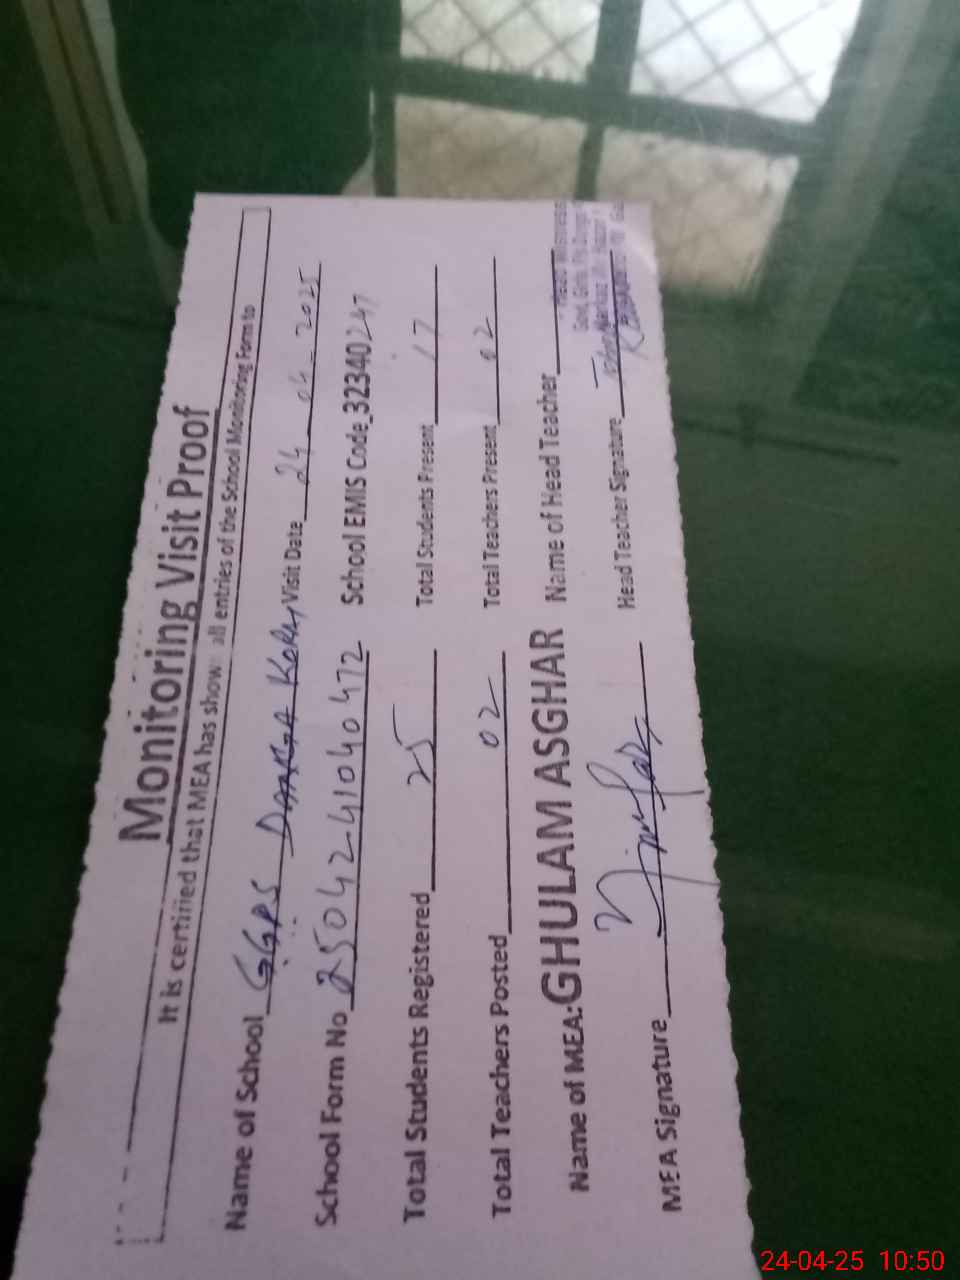 Monitoring Visit Proof
It is certified that MEA has shown all entries of the School Monitoring Form to
Name of School GGPS Visit Date 24-04-2025
School Form No 25042-41040472 School EMIS Code 32340247
Total Students Registered 25 Total Students Present 17
Total Teachers Posted 02 Total Teachers Present 02
Name of MEA: GHULAM ASGHAR Name of Head Teacher
Head Mistress
Govt. Girls
MEA Signature Head Teacher Signature
24-04-25 10:50